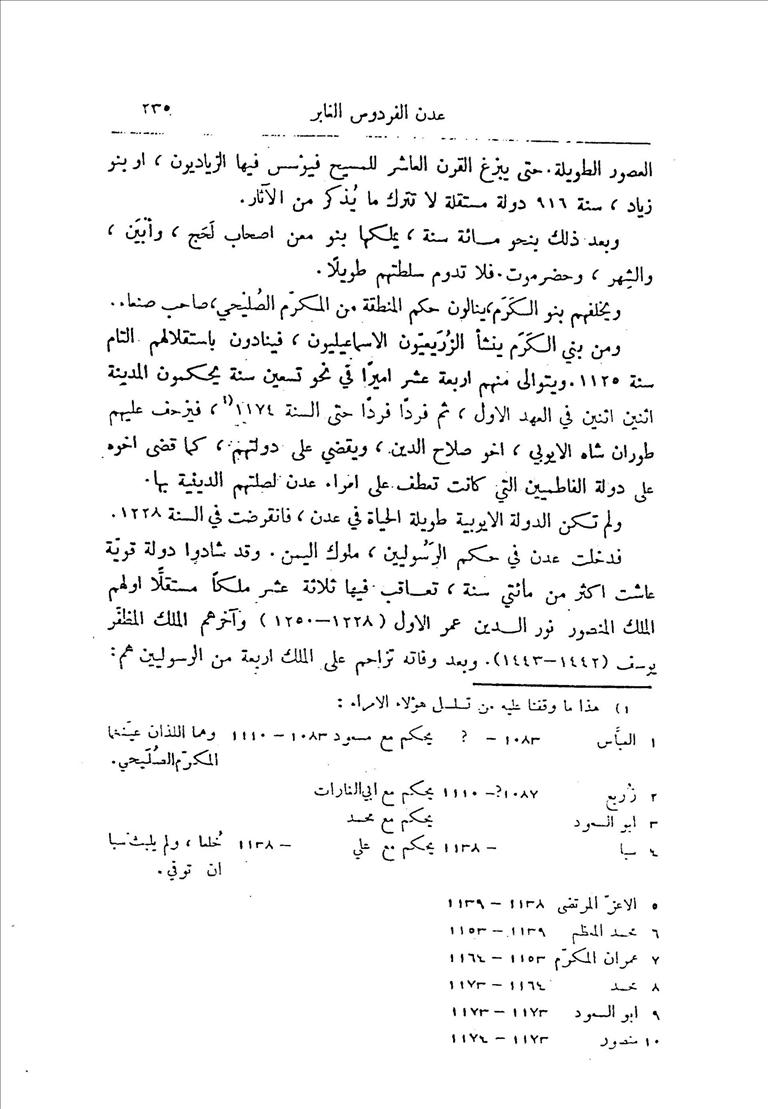 عدن الفردوس الغابر ٢٣٥
العصور الطويلة. حتى يبزغ القرن العاشر للمسيح فيؤسس فيها الزياديون ، او بنو
زياد ، سنة ٩١٦ دولة مستقلة لا تترك ما يُذكر من الآثار.
وبعد ذلك بنحو مائة سنة ، يملكها بنو معن اصحاب لَحَج ، وأبْيَن ،
والشِهر ، وحضرموت. فلا تدوم سلطتهم طويلًا.
ويخلفهم بنو الكَرَم ، ينالون حكم المنطقة من المكرّم الصُلَيحي ، صاحب صنعاء.
ومن بني الكَرَم ينشأ الزُرَيعيّون الاسماعيليون ، فينادون باستقلالهم التام
سنة ١١٢٥. ويتوالى منهم اربعة عشر اميرًا في نحو تسعين سنة يحكمون المدينة
اثنين اثنين في العهد الاول ، ثم فردًا فردًا حتى السنة ١١٧٤ (١ ، فيزحف عليهم
طوران شاه الايوبي ، اخو صلاح الدين ، ويقضي على دولتهم ، كما قضى اخوه
على دولة الفاطميين التي كانت تعطف على امراء عدن لصلتهم الدينية بها.
ولم تكن الدولة الايوبية طويلة الحياة في عدن ، فانقرضت في السنة ١٢٢٨.
فدخلت عدن في حكم الرَسُوليين ، ملوك اليمن. وقد شادوا دولة قويّة
عاشت اكثر من مائتي سنة ، تعاقب فيها ثلاثة عشر ملكاً مستقلًّا اولهم
الملك المنصور نور الدين عمر الاول (١٢٢٨–١٢٥٠) وآخرهم الملك المظفّر
يوسف (١٤٤٢–١٤٤٣). وبعد وفاته تزاحم على الملك اربعة من الرسوليين هم:
١) هذا ما وقفنا عليه من تسلسل هؤلاء الامراء :
١ العبَّاس ١٠٨٣ – ? يحكم مع مسعود ١٠٨٣ – ١١١٠ وهما اللذان عيّنهما
المكرّم الصُلَيحي.
٢ زُريع ١٠٨٧?– ١١١٠ يحكم مع ابي الغارات
٣ ابو السعود يحكم مع محمد
٤ سبا – ١١٣٨ يحكم مع علي – ١١٣٨ خُلعا ، ولم يلبث سبا
ان توفي.
٥ الاعزّ المرتضى ١١٣٨ – ١١٣٩
٦ محمد المعظم ١١٣٩ – ١١٥٣
٧ عمران المكرّم ١١٥٣ – ١١٦٤
٨ محمد ١١٦٤ – ١١٧٣
٩ ابو السعود ١١٧٣ – ١١٧٣
١٠ منصور ١١٧٣ – ١١٧٤